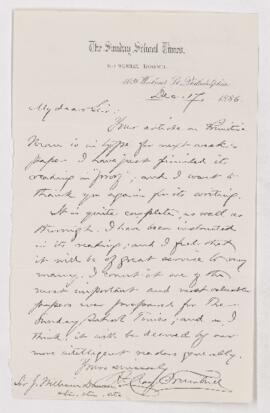 The Sunday School Times.
Philadelphia
Dec. 17, 1886.
My dear Sir:
Your article on Primitive
Man is in type for next week's
paper. I have just finished its
reading in proof, and I want to
thank you again for its writing.
It is quite complete, as well as
thorough. I have been instructed
in its reading, and I feel that
it will be of great service to very
many. I count it one of the
most important and most valuable
papers ever prepared for The
Sunday School Times; and, as I
think, it will be deemed by our
more intelligent readers generally.
Yours sincerely
H. Clay Trumbull
Sir J. William Dawson
etc. etc. etc.